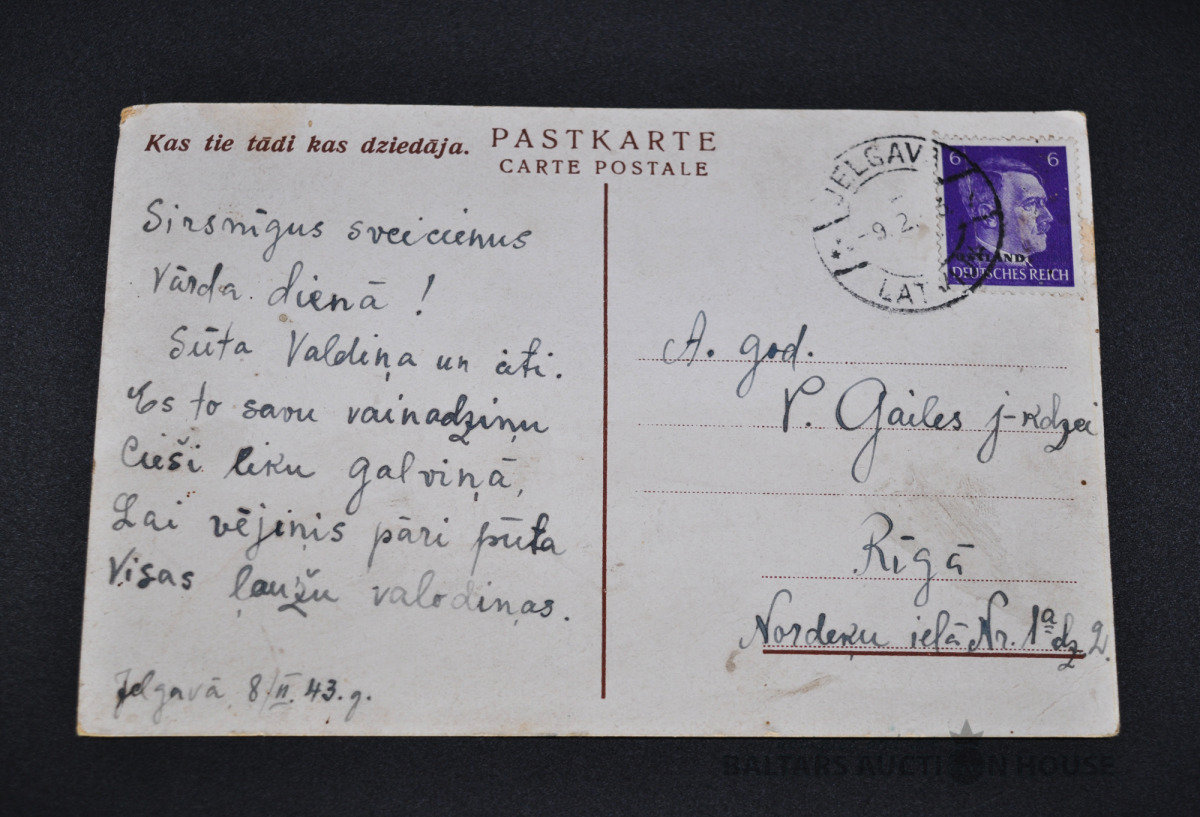 Kas tie tādi kas dziedāja.
PASTKARTE
CARTE POSTALE
Sirsnīgus sveicienus
Vārda dienā!
Sūta Valdiņa un āti.
Es to savu vainadziņu
Cieši liku galviņā,
Lai vējiņis pāri pūta
Visas ļaužu valodiņas.
Jelgavā 8/II. 43. g.
JELGAVA
-9.2.
LATV
6 6
OSTLAND
DEUTSCHES REICH
A. god.
V. Gailes j-kdzei
Rīgā
Nordeķu ielā Nr. 1a dz 2.
BALTARS AUCTION HOUSE